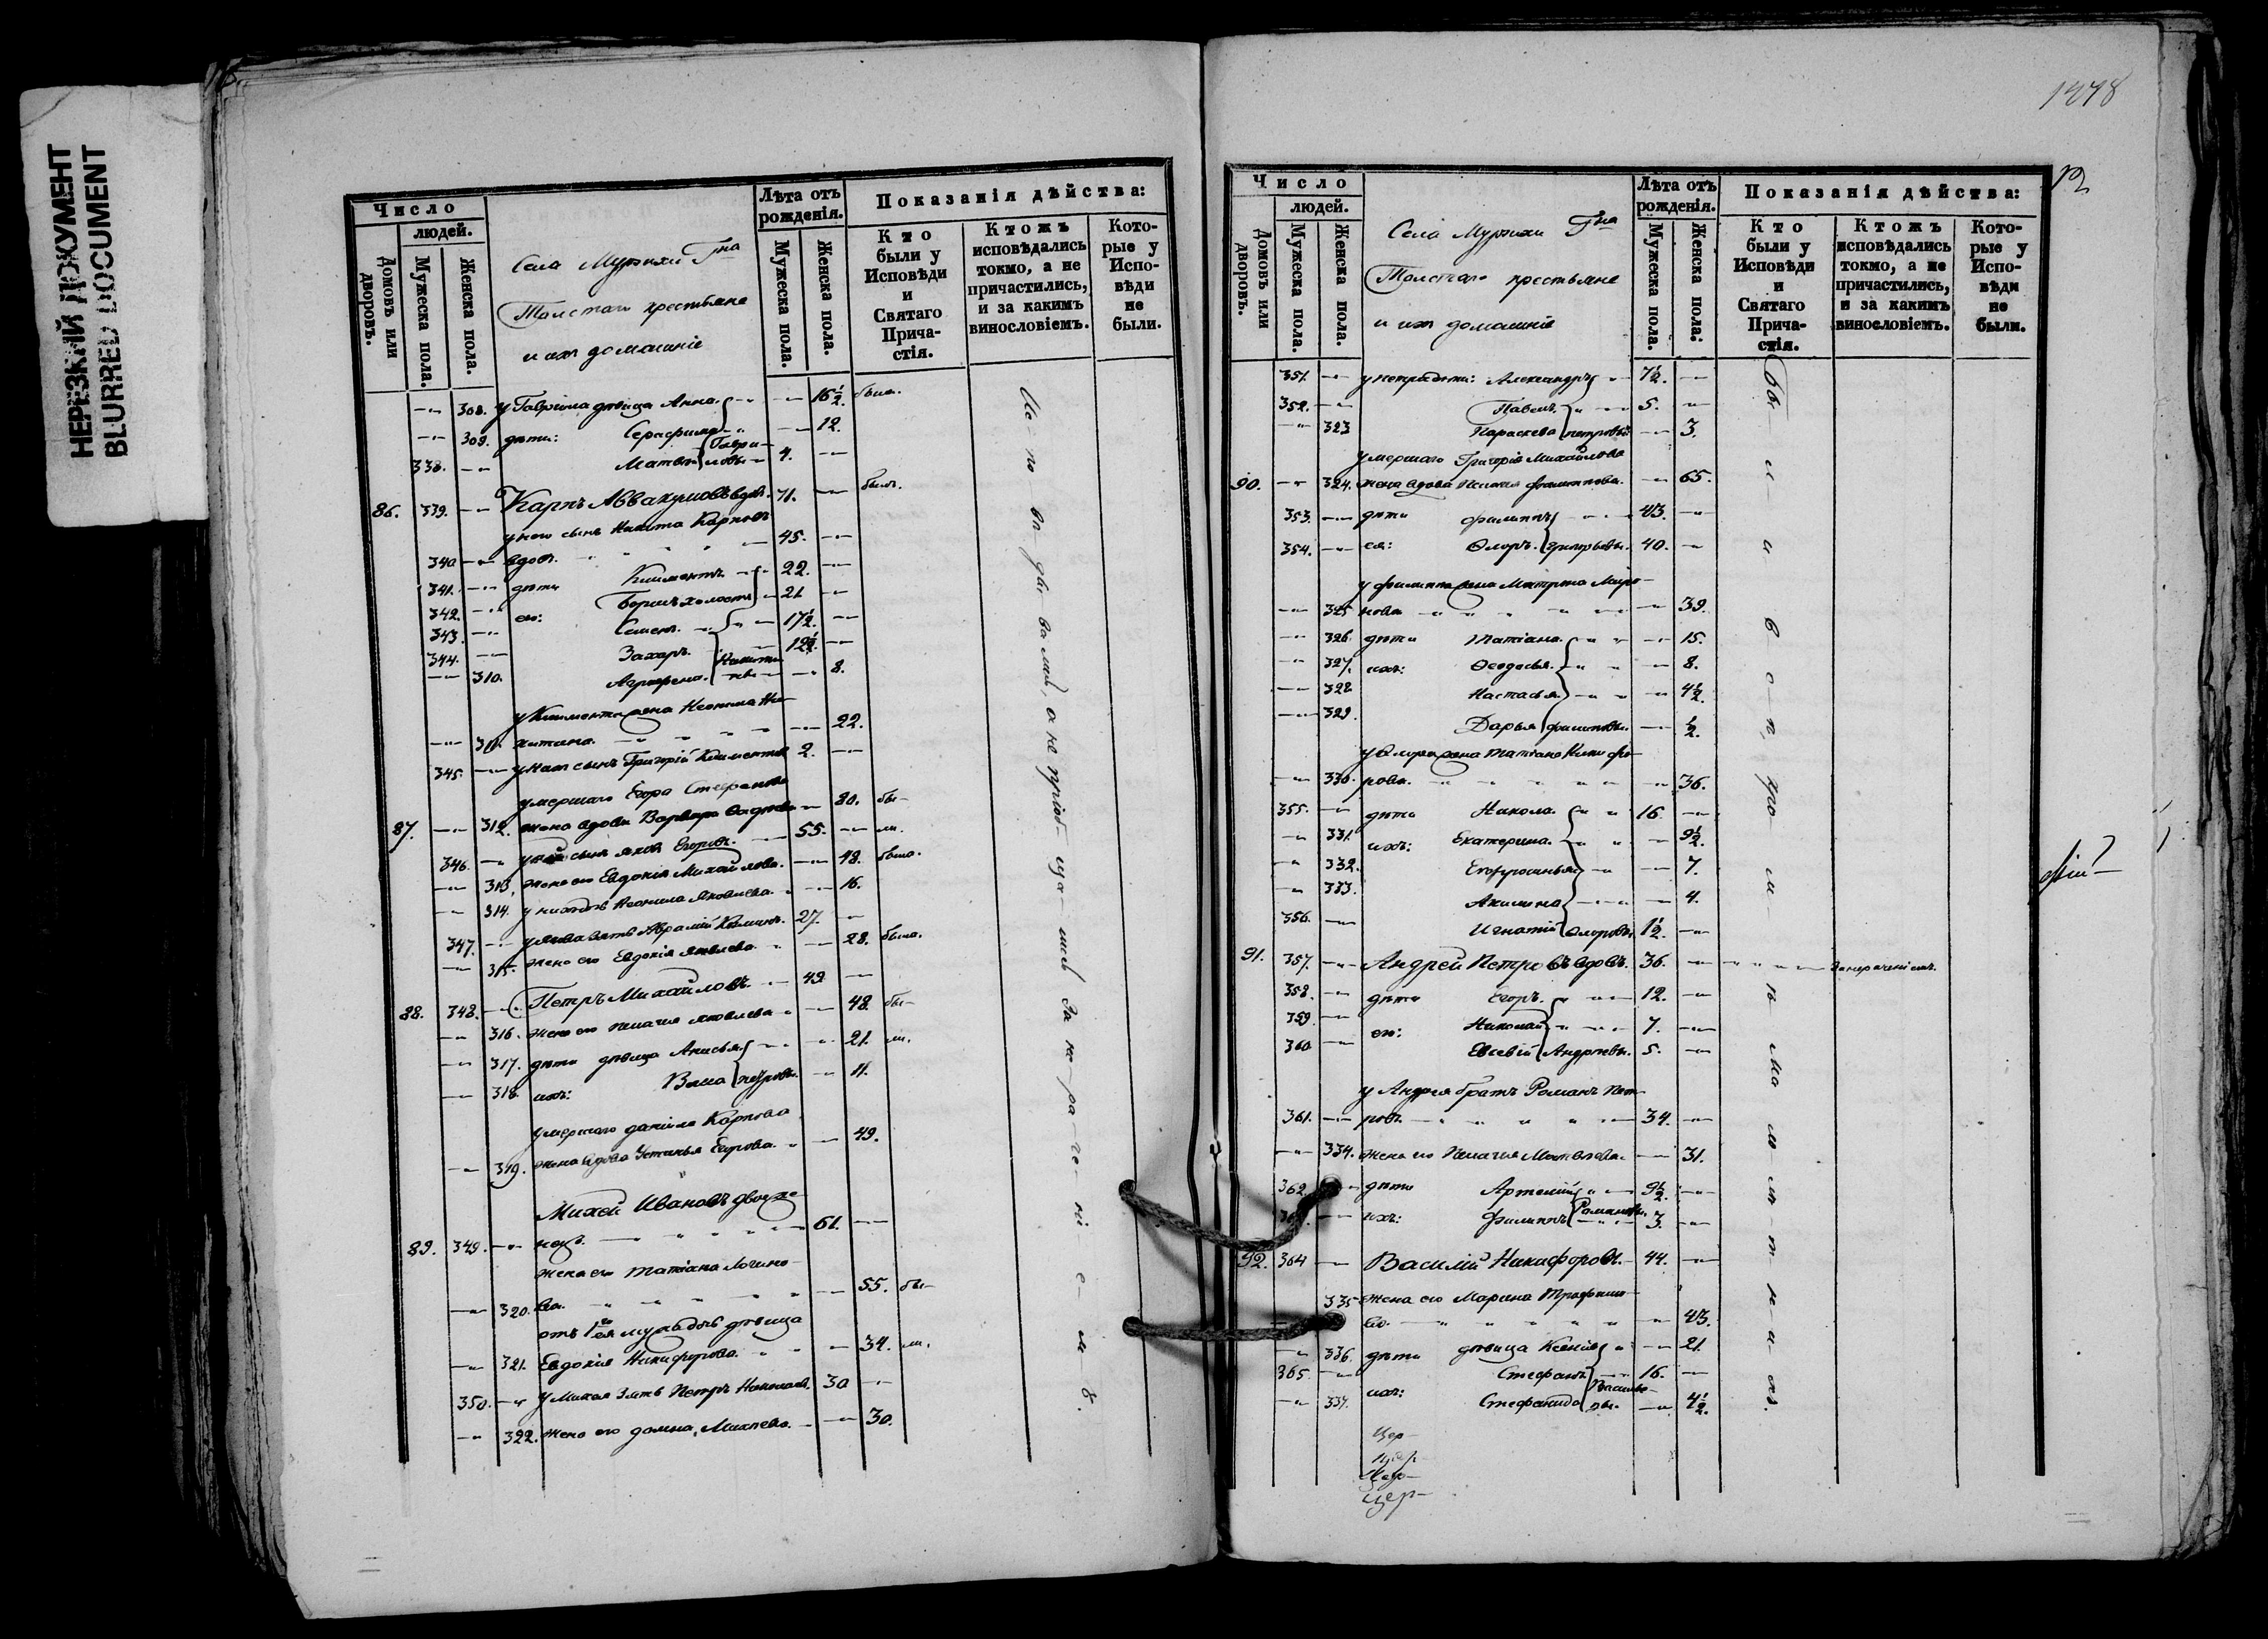 НЕРЕЗКИЙ ДОКУМЕНТ
BLURRED DOCUMENT
Число
людей.
Домовъ или дворовъ.
Мужеска пола.
Женска пола.
Села Муртихи Гна
Толстаго крестьяне
и ихъ домашніе
Лѣта отъ рожденія.
Мужеска пола.
Женска пола.
Показанія дѣйства:
Кто были у Исповѣди и Святаго Прича-стія.
Ктожъ исповѣдались токмо, а не причастились, и за какимъ винословіемъ.
Кото-рые у Испо-вѣди не были.
308. у Гавріила дѣвица Анна. 16½ была.
309. дѣти: Серафима 12.
338. Матвей Гаври-ловы 4.
86. 339. Карпъ Аввакумовъ вдов. 71. былъ.
у него сынъ Никита Карповъ
340 вдов. 45.
341. дѣти Климентъ 22.
342. его: Борисъ холосты 21
343. Семенъ. 17½.
344. Захаръ. 12½.
310. Агрифена. Никити-ны 8.
у Климента жена Неонила Ни-
311. китина. 22.
345. у нихъ сынъ Григорій Климентов 2.
умершаго Егора Стефанова
87. 312. жена вдова Варвара 80. бы-
346. у ней сынъ Яков Егоровъ. 55. ли.
313. жена его Евдокія Михайлова. 48. была.
314. у нихъ дочь Неонила Яковлева. 16.
347. у Якова зять Аврамій 27.
315. жена его Евдокія Яковлева. 28. была.
88. 348. Петръ Михайловъ. 49
316. жена его Пелагея Яковлева 48. бы-
317. дѣти дѣвица Анисья. 21. ли.
318. ихъ: Васса Петровы. 11.
умершаго Данійла Карпова
319. жена вдова Устинья Егорова. 49.
Михей Ивановъ двоуже-
89. 349. нецъ. 61.
жена его Татіана Логино-
320. ва. 55. бы-
отъ 1го ея мужа дочь дѣвица
321. Евдокія Никифорова. 34. ли.
350. у Михея зять Петръ Николаев. 30
322. жена его Домна, Михеева. 30.
Ис-по-вѣ-ды-вались, а не пріоб-ща-лись за не-ра-че-ні-е-мъ.
1478
Число
людей.
Домовъ или дворовъ.
Мужеска пола.
Женска пола.
Села Муртихи Гна
Толстаго крестьяне
и ихъ домашніе
Лѣта отъ рожденія.
Мужеска пола.
Женска пола.
Показанія дѣйства:
Кто были у Исповѣди и Святаго Прича-стія.
Ктожъ исповѣдались токмо, а не причастились, и за какимъ винословіемъ.
Кото-рые у Испо-вѣди не были.
351. у петра дѣти: Александръ 7½.
352. Павелъ. 5.
323 Параскева петровы 3.
умершаго Григорія Михайлова
90. 324. жена вдова Филиппова. 65.
353. дѣти Филиппъ 43.
354. ея: Ѳлоръ. Григорьевы. 40.
у Филиппа жена Матрена Миро-
325 нова 39.
326. дѣти Татіана. 15.
327. ихъ: Ѳеодосья. 8.
328 Настасья 4½
329. Дарья Филипповы. ½.
у Ѳлора жена Татіана Никифо-
330. рова. 36.
355. дѣти Никола. 16.
331. ихъ: Екатерина. 9½.
332. Ефросинья 7.
333. Акилина 4.
356. Игнатій Ѳлоровы. 1½.
91. 357. Андрей Петровъ вдовъ. 36. за нераченіемъ.
358. дѣти Егоръ. 12.
359 его: Николай 7.
360 Евсевій Андреевы. 5.
у Андрея братъ Романъ Пет-
361. ровъ 34.
334. жена его Пелагея Матвеева. 31.
362. дѣти Артемій 9½.
363. ихъ: Филиппъ Романовы. 3.
92. 364 Василій Никифоровъ. 44.
335 жена его Марина Трофимо-
ва. 43.
336. дѣти дѣвица Ксенія 21
365. Стефанъ 16.
337. ихъ: Стефанида Василье-вы. 4½.
Цер-
Цер-
Цер-
Цер-